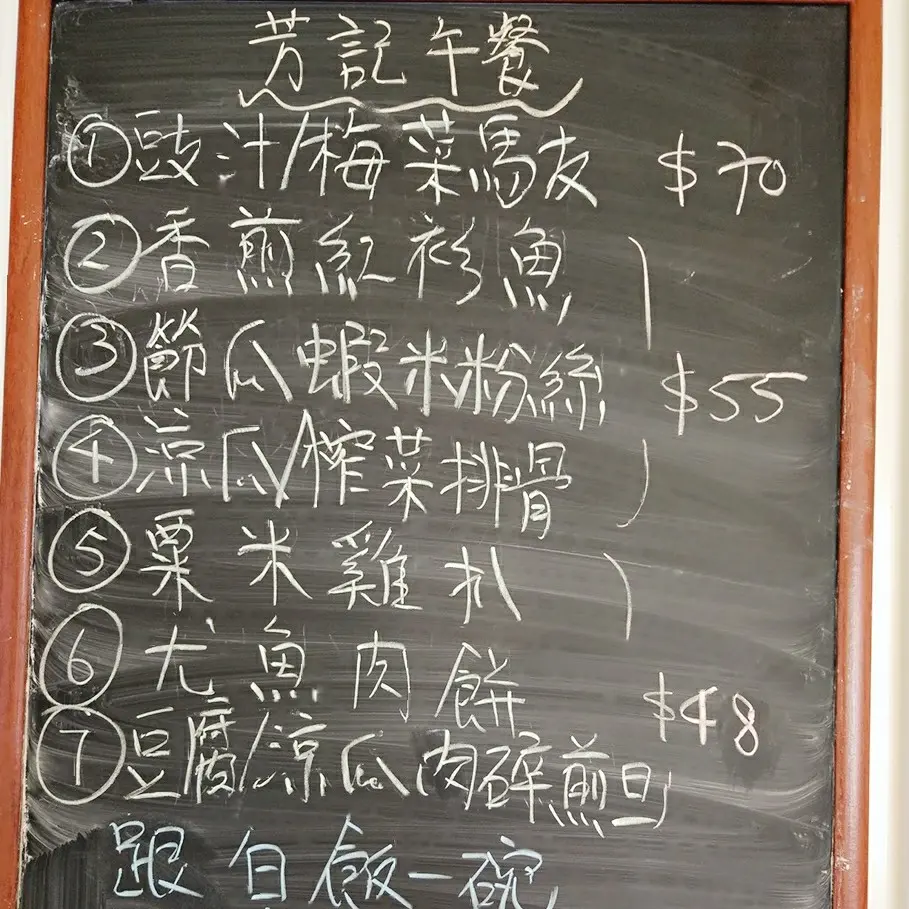 芳記午餐
①豉汁/梅菜馬友 $70
②香煎紅衫魚
③節瓜蝦米粉絲 $55
④涼瓜/榨菜排骨
⑤粟米雞扒
⑥尤魚肉餅 $48
⑦豆腐/涼瓜肉碎煎旦
跟白飯一碗